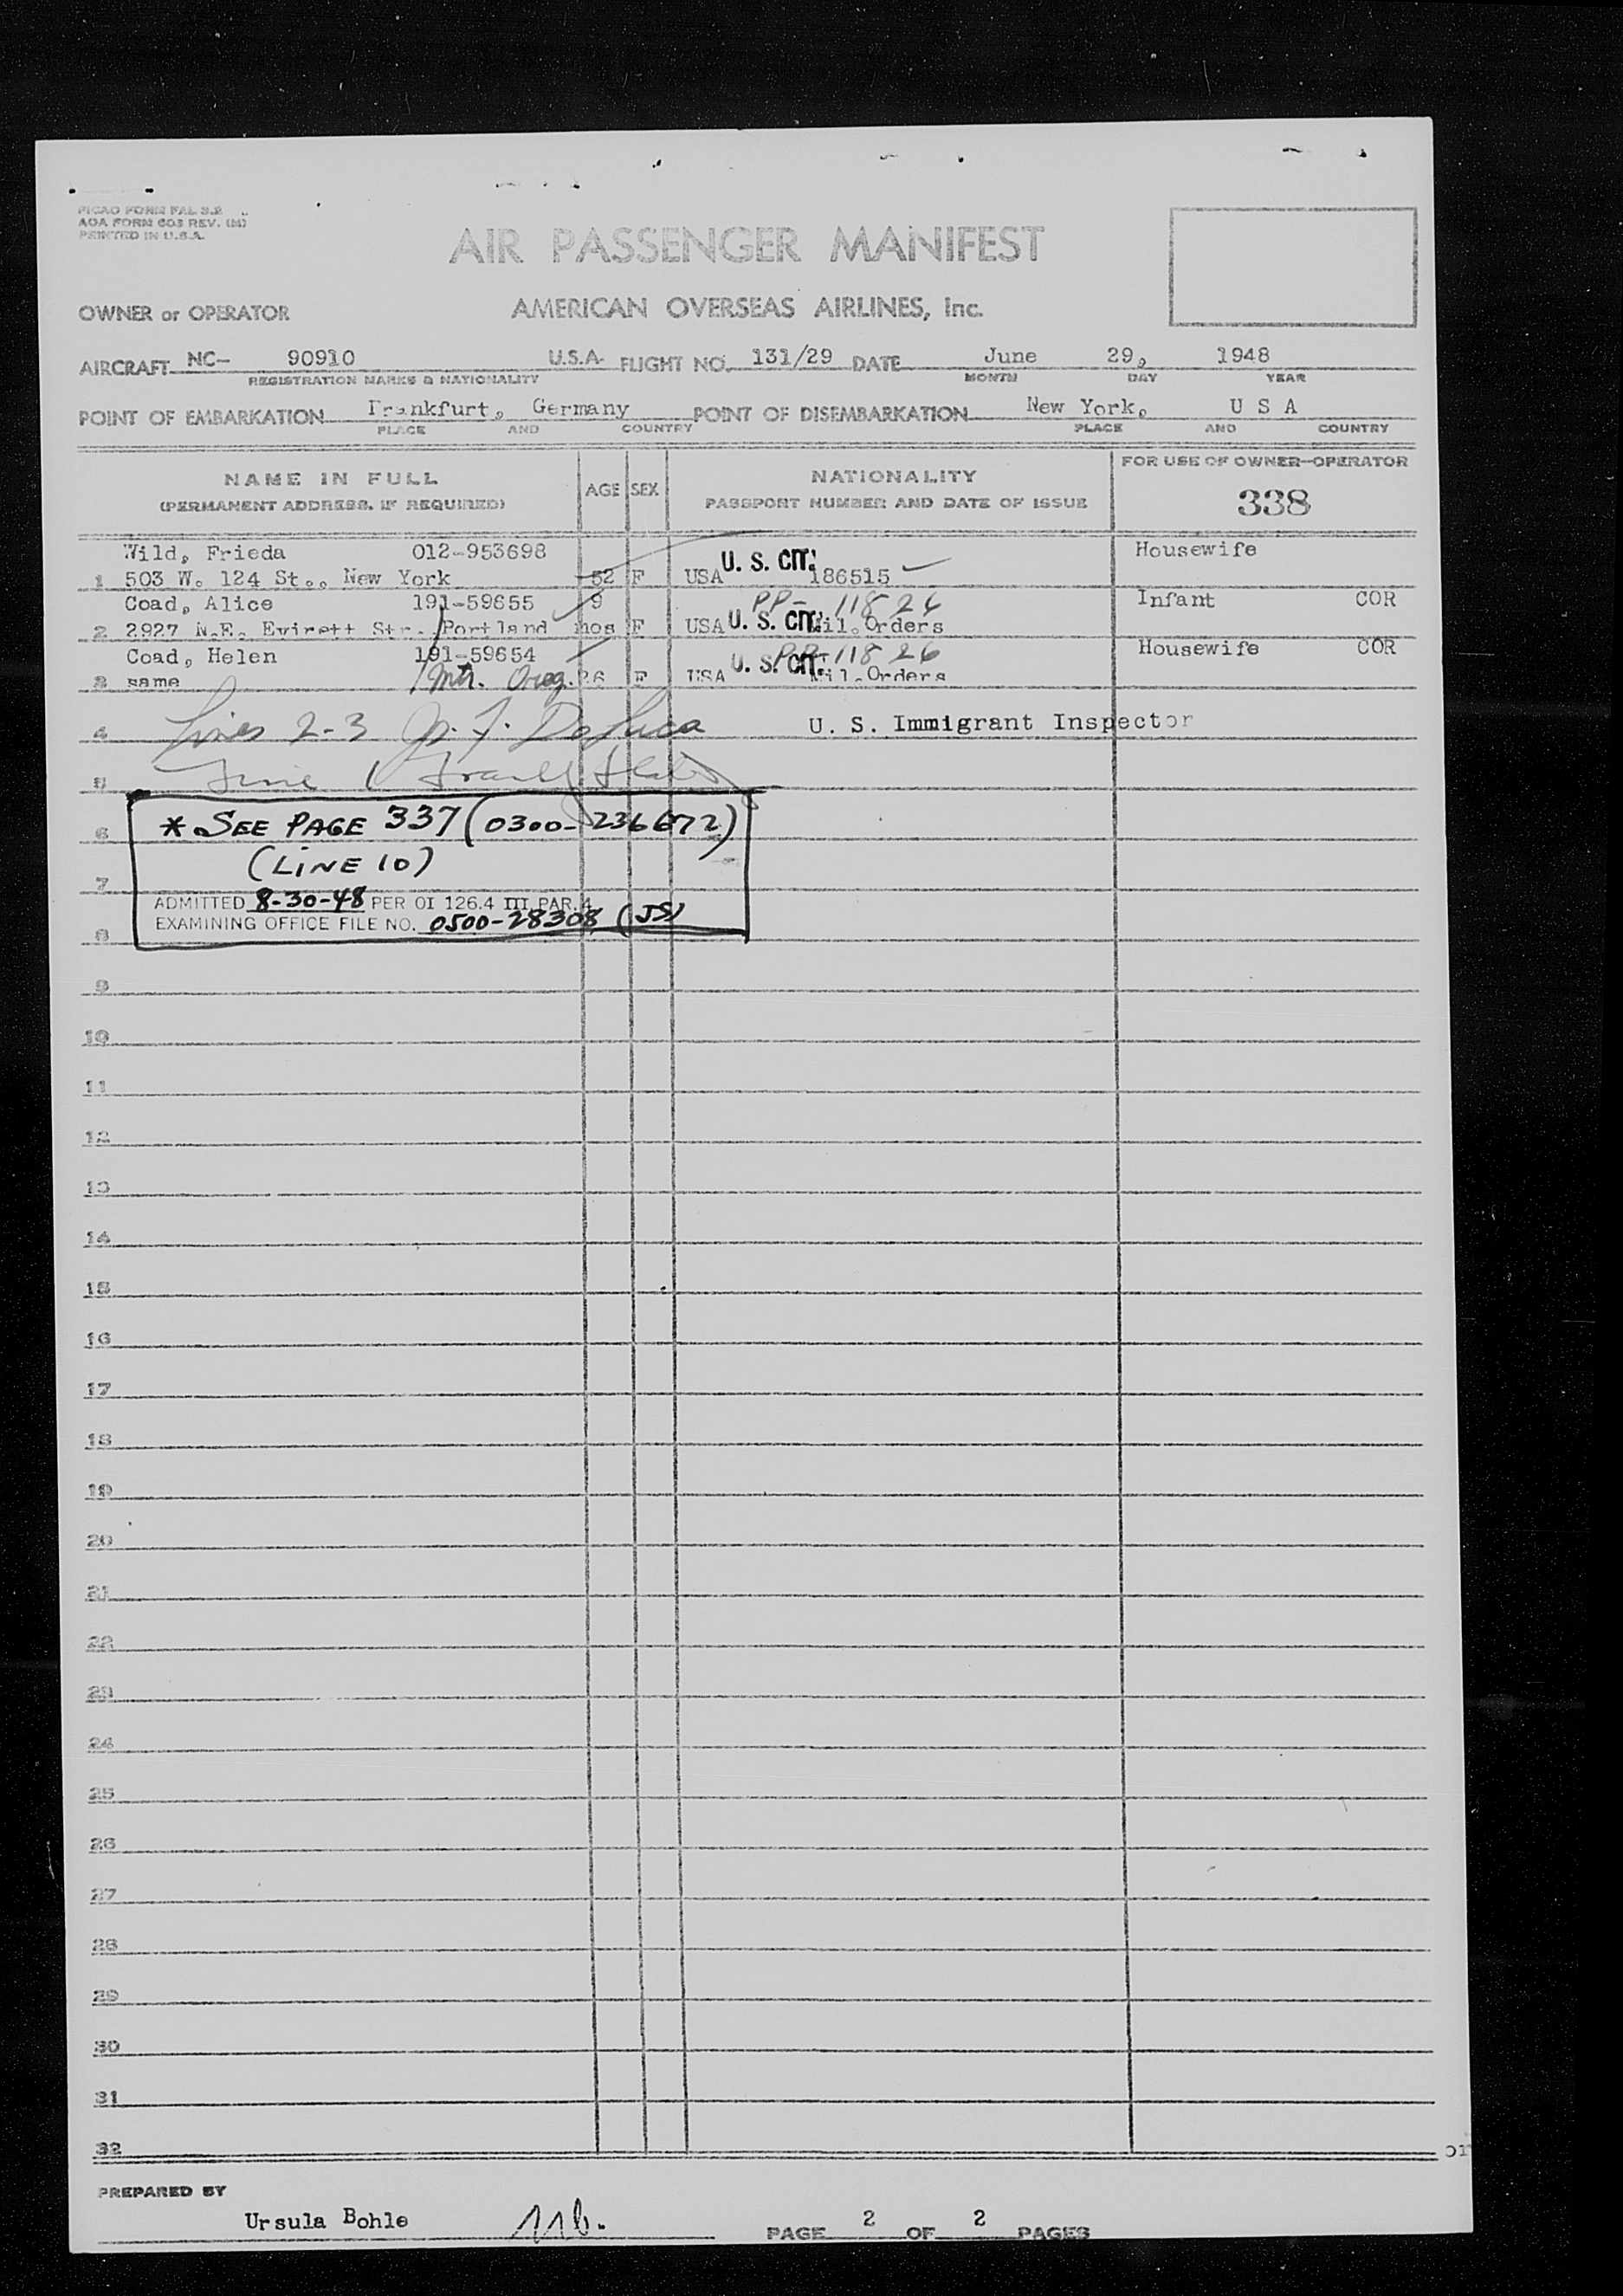 PICAO FORM FAL 3.2
AOA FORM 603 REV. (M)
PRINTED IN U.S.A.
AIR PASSENGER MANIFEST
OWNER or OPERATOR AMERICAN OVERSEAS AIRLINES, Inc.
AIRCRAFT NC- 90910 U.S.A. FLIGHT NO. 131/29 DATE June 29, 1948
REGISTRATION MARKS & NATIONALITY MONTH DAY YEAR
POINT OF EMBARKATION Frankfurt, Germany POINT OF DISEMBARKATION New York, U S A
PLACE AND COUNTRY PLACE AND COUNTRY
NAME IN FULL AGE SEX NATIONALITY FOR USE OF OWNER-OPERATOR
(PERMANENT ADDRESS, IF REQUIRED) PASSPORT NUMBER AND DATE OF ISSUE 338
Wild, Frieda 012-953698 U. S. CIT. Housewife
1 503 W. 124 St., New York 52 F USA 186515
Coad, Alice 191-59655 9 PP- 11826 Infant COR
2 2927 N.E. Evirett Str. Portland mos F USA U. S. CIT. Mil. Orders
Coad, Helen 191-59654 PP-11826 Housewife COR
3 same Oreg. 26 F USA U. S. CIT. Mil. Orders
4 Lines 2-3 DeLuca U. S. Immigrant Inspector
5 Line 1
6 * SEE PAGE 337 (0300-236672)
(LINE 10)
7
ADMITTED 8-30-48 PER OI 126.4 III PAR. 4
EXAMINING OFFICE FILE NO. 0500-28308 (JS)
8
9
10
11
12
13
14
15
16
17
18
19
20
21
22
23
24
25
26
27
28
29
30
31
32
PREPARED BY
Ursula Bohle PAGE 2 OF 2 PAGES